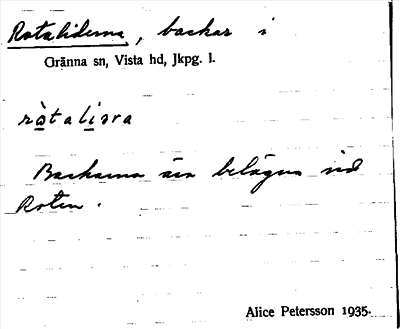 Rotaliderna, backar i
Gränna sn, Vista hd, Jkpg. l.
ròtalisra
Backarna äro belägna vid
Roten.
Alice Petersson 1935.